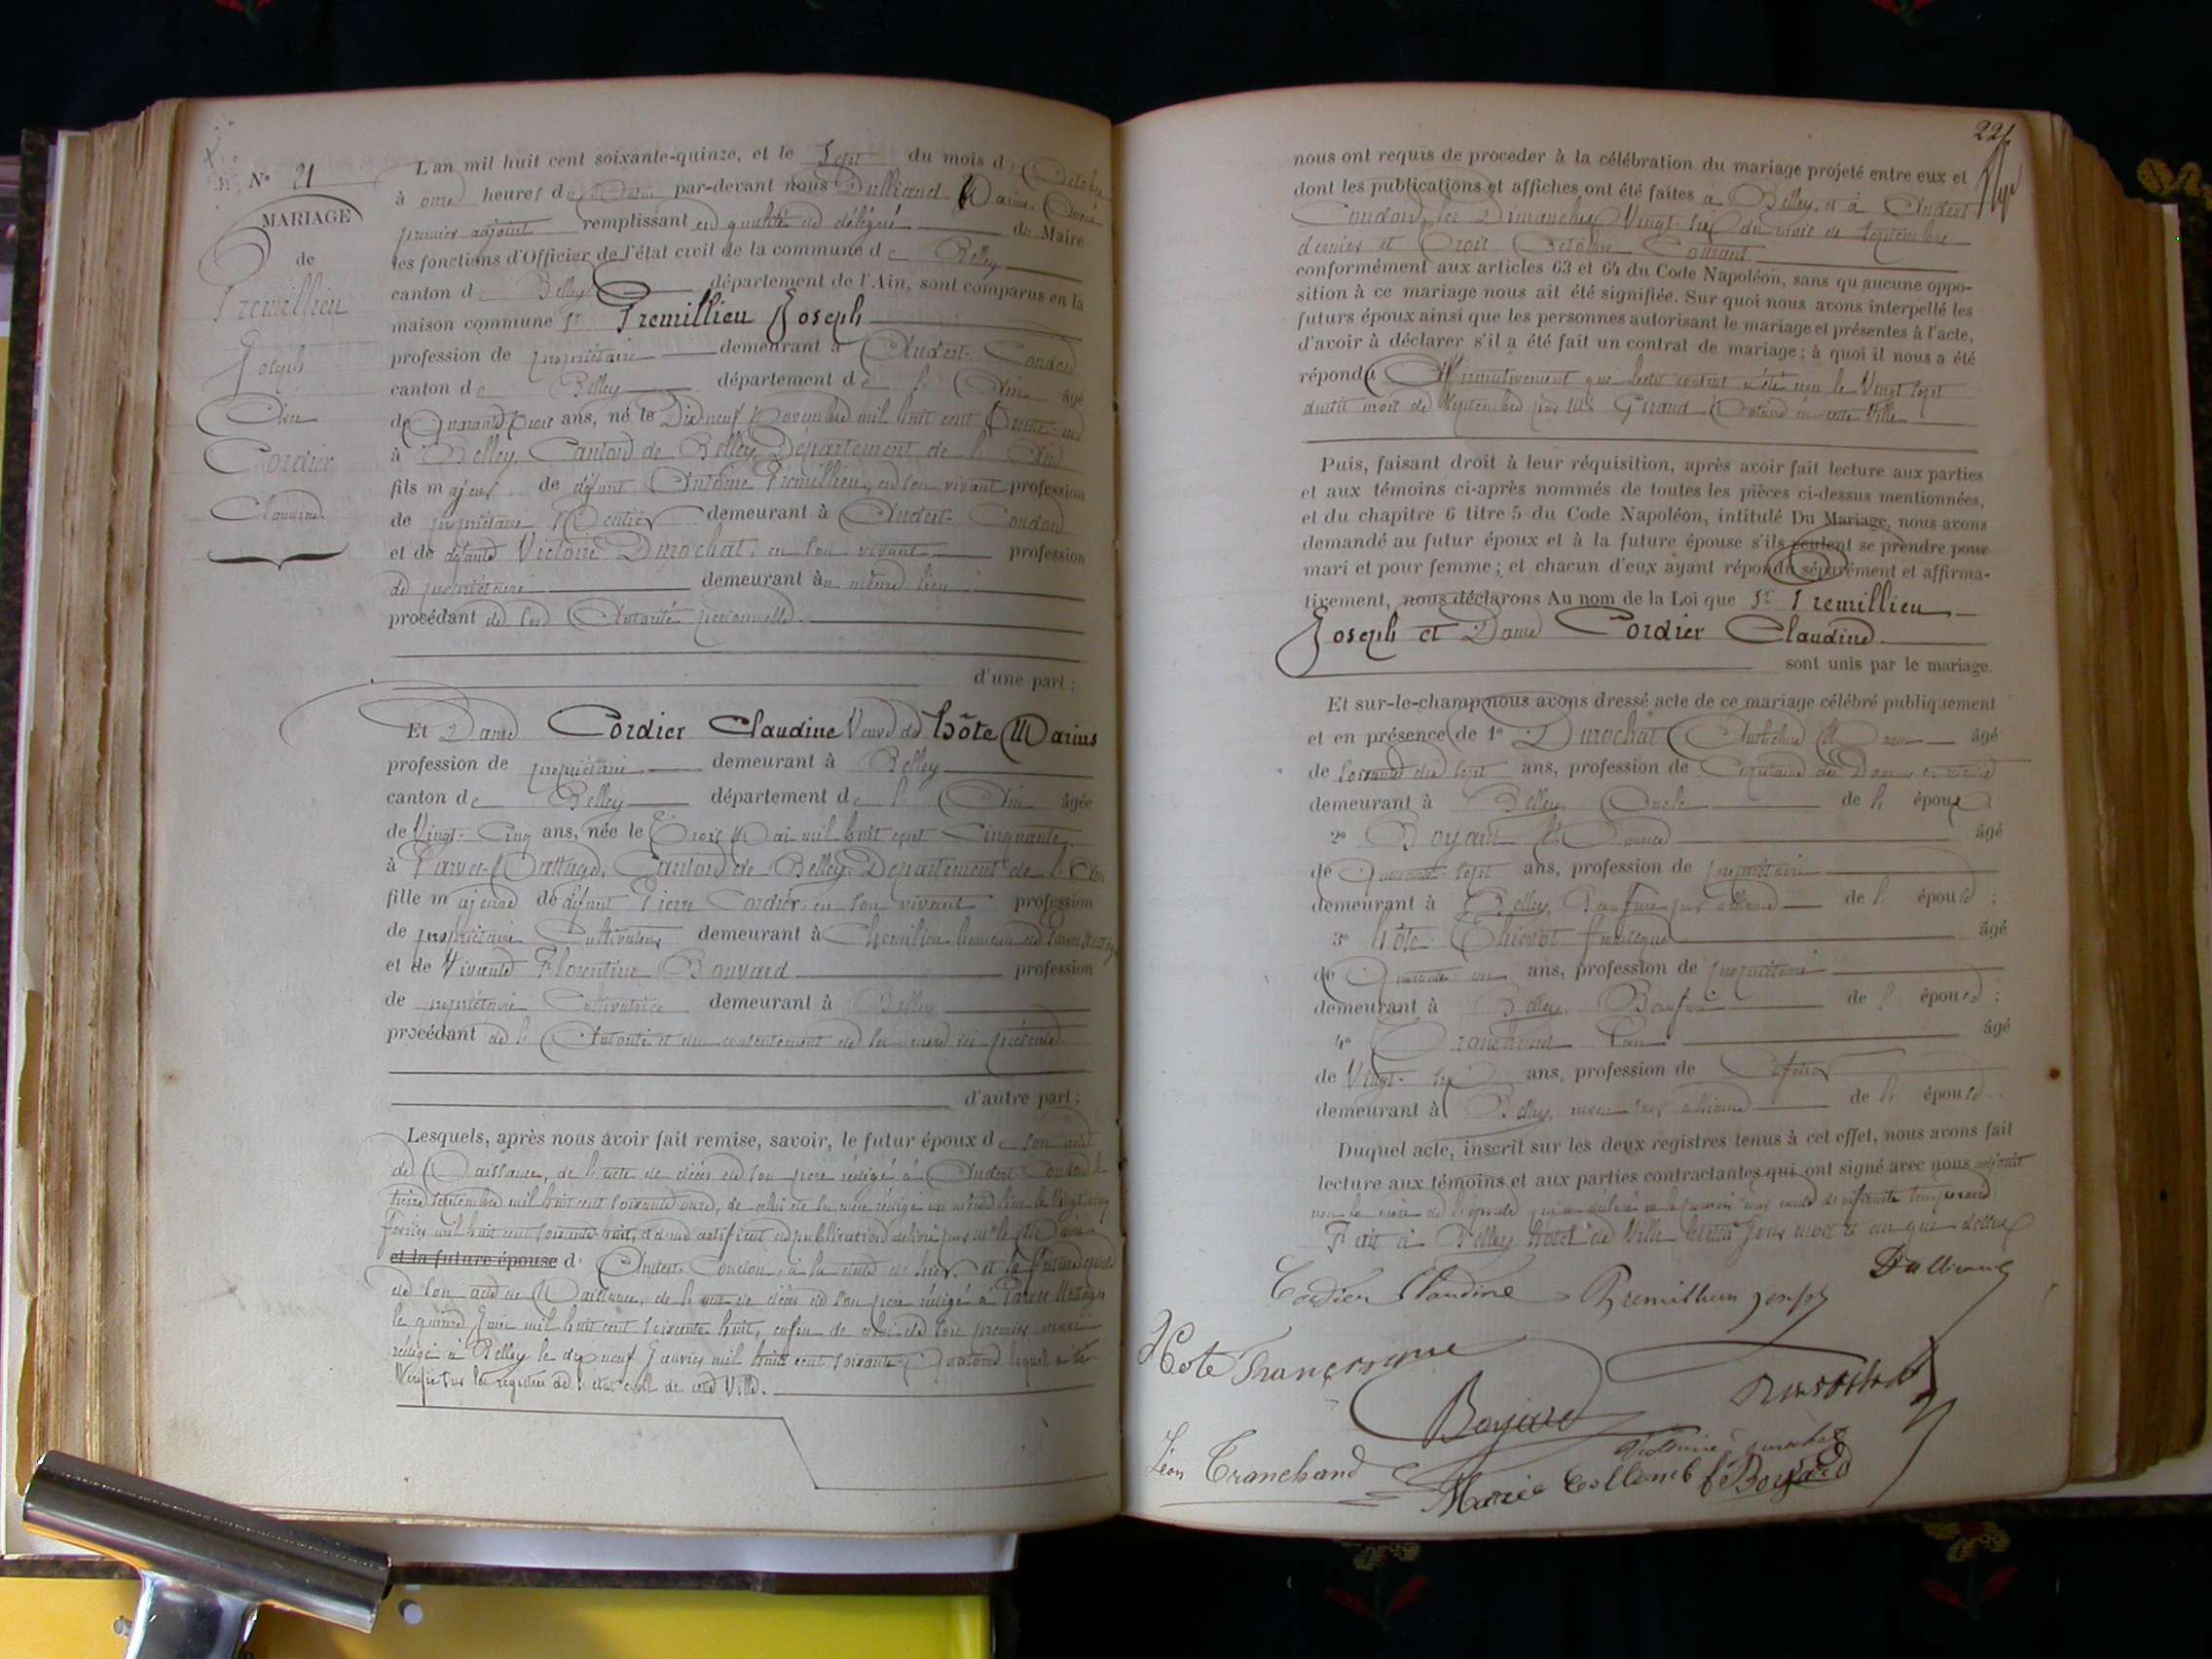 N° 21
MARIAGE
de
Premillieu
Joseph
Avec
Cordier
Claudine.
L'an mil huit cent soixante-quinze, et le Sept du mois d'Octobre
à onze heures du par-devant nous Dullieand Marius,
premier adjoint remplissant en qualité de délégué du Maire
les fonctions d'Officier de l'état civil de la commune de Belley
canton de Belley département de l'Ain, sont comparus en la
maison commune Sr Premillieu Joseph
profession de propriétaire demeurant à Andert-Condon
canton de Belley département de l'Ain âgé
de Quarante-trois ans, né le Dix neuf Novembre mil huit cent trente-un
à Belley, Canton de Belley, Département de l'Ain
fils majeur de défunt Antoine Premillieu, en son vivant profession
de propriétaire Rentier demeurant à Andert-Condon
et de défunte Victoire Durochat, en son vivant profession
de propriétaire demeurant au même lieu
procédant de son Autorité personnelle.
d'une part;
Et Dame Cordier Claudine Veuve de hôte Marius
profession de propriétaire demeurant à Belley
canton de Belley département de l'Ain âgée
de Vingt-Cinq ans, née le Trois Mai mil huit cent Cinquante
à Canton de Belley, Département de l'Ain
fille majeure de défunt Pierre Cordier en son vivant profession
de propriétaire Cultivateur demeurant à Chemilieu hameau de
et de Vivante Florentine Bouvard profession
de propriétaire Cultivatrice demeurant à Belley
procédant de l'Autorité et du consentement de sa mère ici présente.
d'autre part;
Lesquels, après nous avoir fait remise, savoir, le futur époux de son acte
de Naissance, de l'acte de décès de son père rédigé à Andert-Condon le
treize Septembre mil huit cent soixante onze, de celui de sa mère rédigé au même lieu le vingt cinq
Février mil huit cent soixante-huit, et d'un certificat de publication délivré par Mr le Maire
et la future épouse d'Andert-Condon, à la date de hier, et la future épouse
de son acte de Naissance, de l'acte de décès de son père rédigé à
le quinze mil huit cent soixante huit, enfin de celui de son premier mari
rédigé à Belley le dix neuf Janvier mil huit cent soixante-Quatorze lequel a été
Vérifié sur les registres de l'état civil de cette Ville.
221
nous ont requis de procéder à la célébration du mariage projeté entre eux et
dont les publications et affiches ont été faites à Belley, et à Andert
Condon, les Dimanches Vingt-six du mois de Septembre
dernier et Trois Octobre Courant.
conformément aux articles 63 et 64 du Code Napoléon, sans qu'aucune oppo-
sition à ce mariage nous ait été signifiée. Sur quoi nous avons interpellé les
futurs époux ainsi que les personnes autorisant le mariage et présentes à l'acte,
d'avoir à déclarer s'il a été fait un contrat de mariage; à quoi il nous a été
répondu Affirmativement que ledit contrat a été reçu le Vingt Sept
dudit mois de Septembre par Me Girand Notaire en cette Ville
Puis, faisant droit à leur réquisition, après avoir fait lecture aux parties
et aux témoins ci-après nommés de toutes les pièces ci-dessus mentionnées,
et du chapitre 6 titre 5 du Code Napoléon, intitulé Du Mariage, nous avons
demandé au futur époux et à la future épouse s'ils veulent se prendre pour
mari et pour femme; et chacun d'eux ayant répondu séparément et affirma-
tivement, nous déclarons Au nom de la Loi que Sr Premillieu
Joseph et Dame Cordier Claudine.
sont unis par le mariage.
Et sur-le-champ nous avons dressé acte de ce mariage célébré publiquement
et en présence de 1° Durochat Anthelme âgé
de soixante dix sept ans, profession de Capitaine des Douanes en retraite
demeurant à Belley, Oncle de l'époux
2° Boyard âgé
de Quarante-sept ans, profession de propriétaire
demeurant à Belley, Beau frère par alliance de l'épouse;
3° hôte âgé
de Quarante un ans, profession de propriétaire
demeurant à Belley, Beau frère de l'épouse;
4° Tranchand Léon âgé
de Vingt-six ans, profession de Cafetier
demeurant à Belley, neveu par alliance de l'épouse.
Duquel acte, inscrit sur les deux registres tenus à cet effet, nous avons fait
lecture aux témoins et aux parties contractantes qui ont signé avec nous adjoint
non la mère de l'épouse qui a déclaré ne le pouvoir pour cause d'infirmité temporaire
Fait à Belley hôtel de Ville lesdits Jour mois et an que dessus
Cordier Claudine Premillieu Joseph
Hote
Boyard Durochat
Léon Tranchand
Marie Collomb fe Boyard